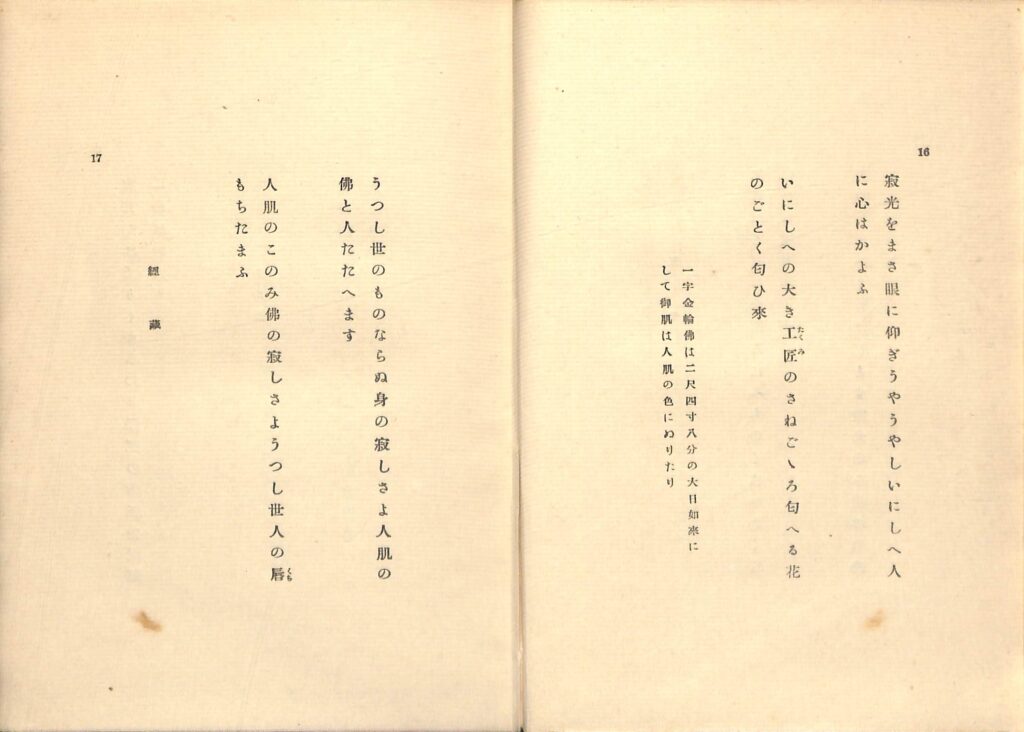 16
寂光をまさ眼に仰ぎうやうやしいにしへ人
に心はかよふ
いにしへの大き工匠のさねごゝろ匂へる花
たくみ
のごとく匂ひ來
一字金輪佛は二尺四寸八分の大日如來に
して御肌は人肌の色にぬりたり
17
うつし世のものならぬ身の寂しさよ人肌の
佛と人たたへます
人肌のこのみ佛の寂しさようつし世人の唇
くち
もちたまふ
經藏